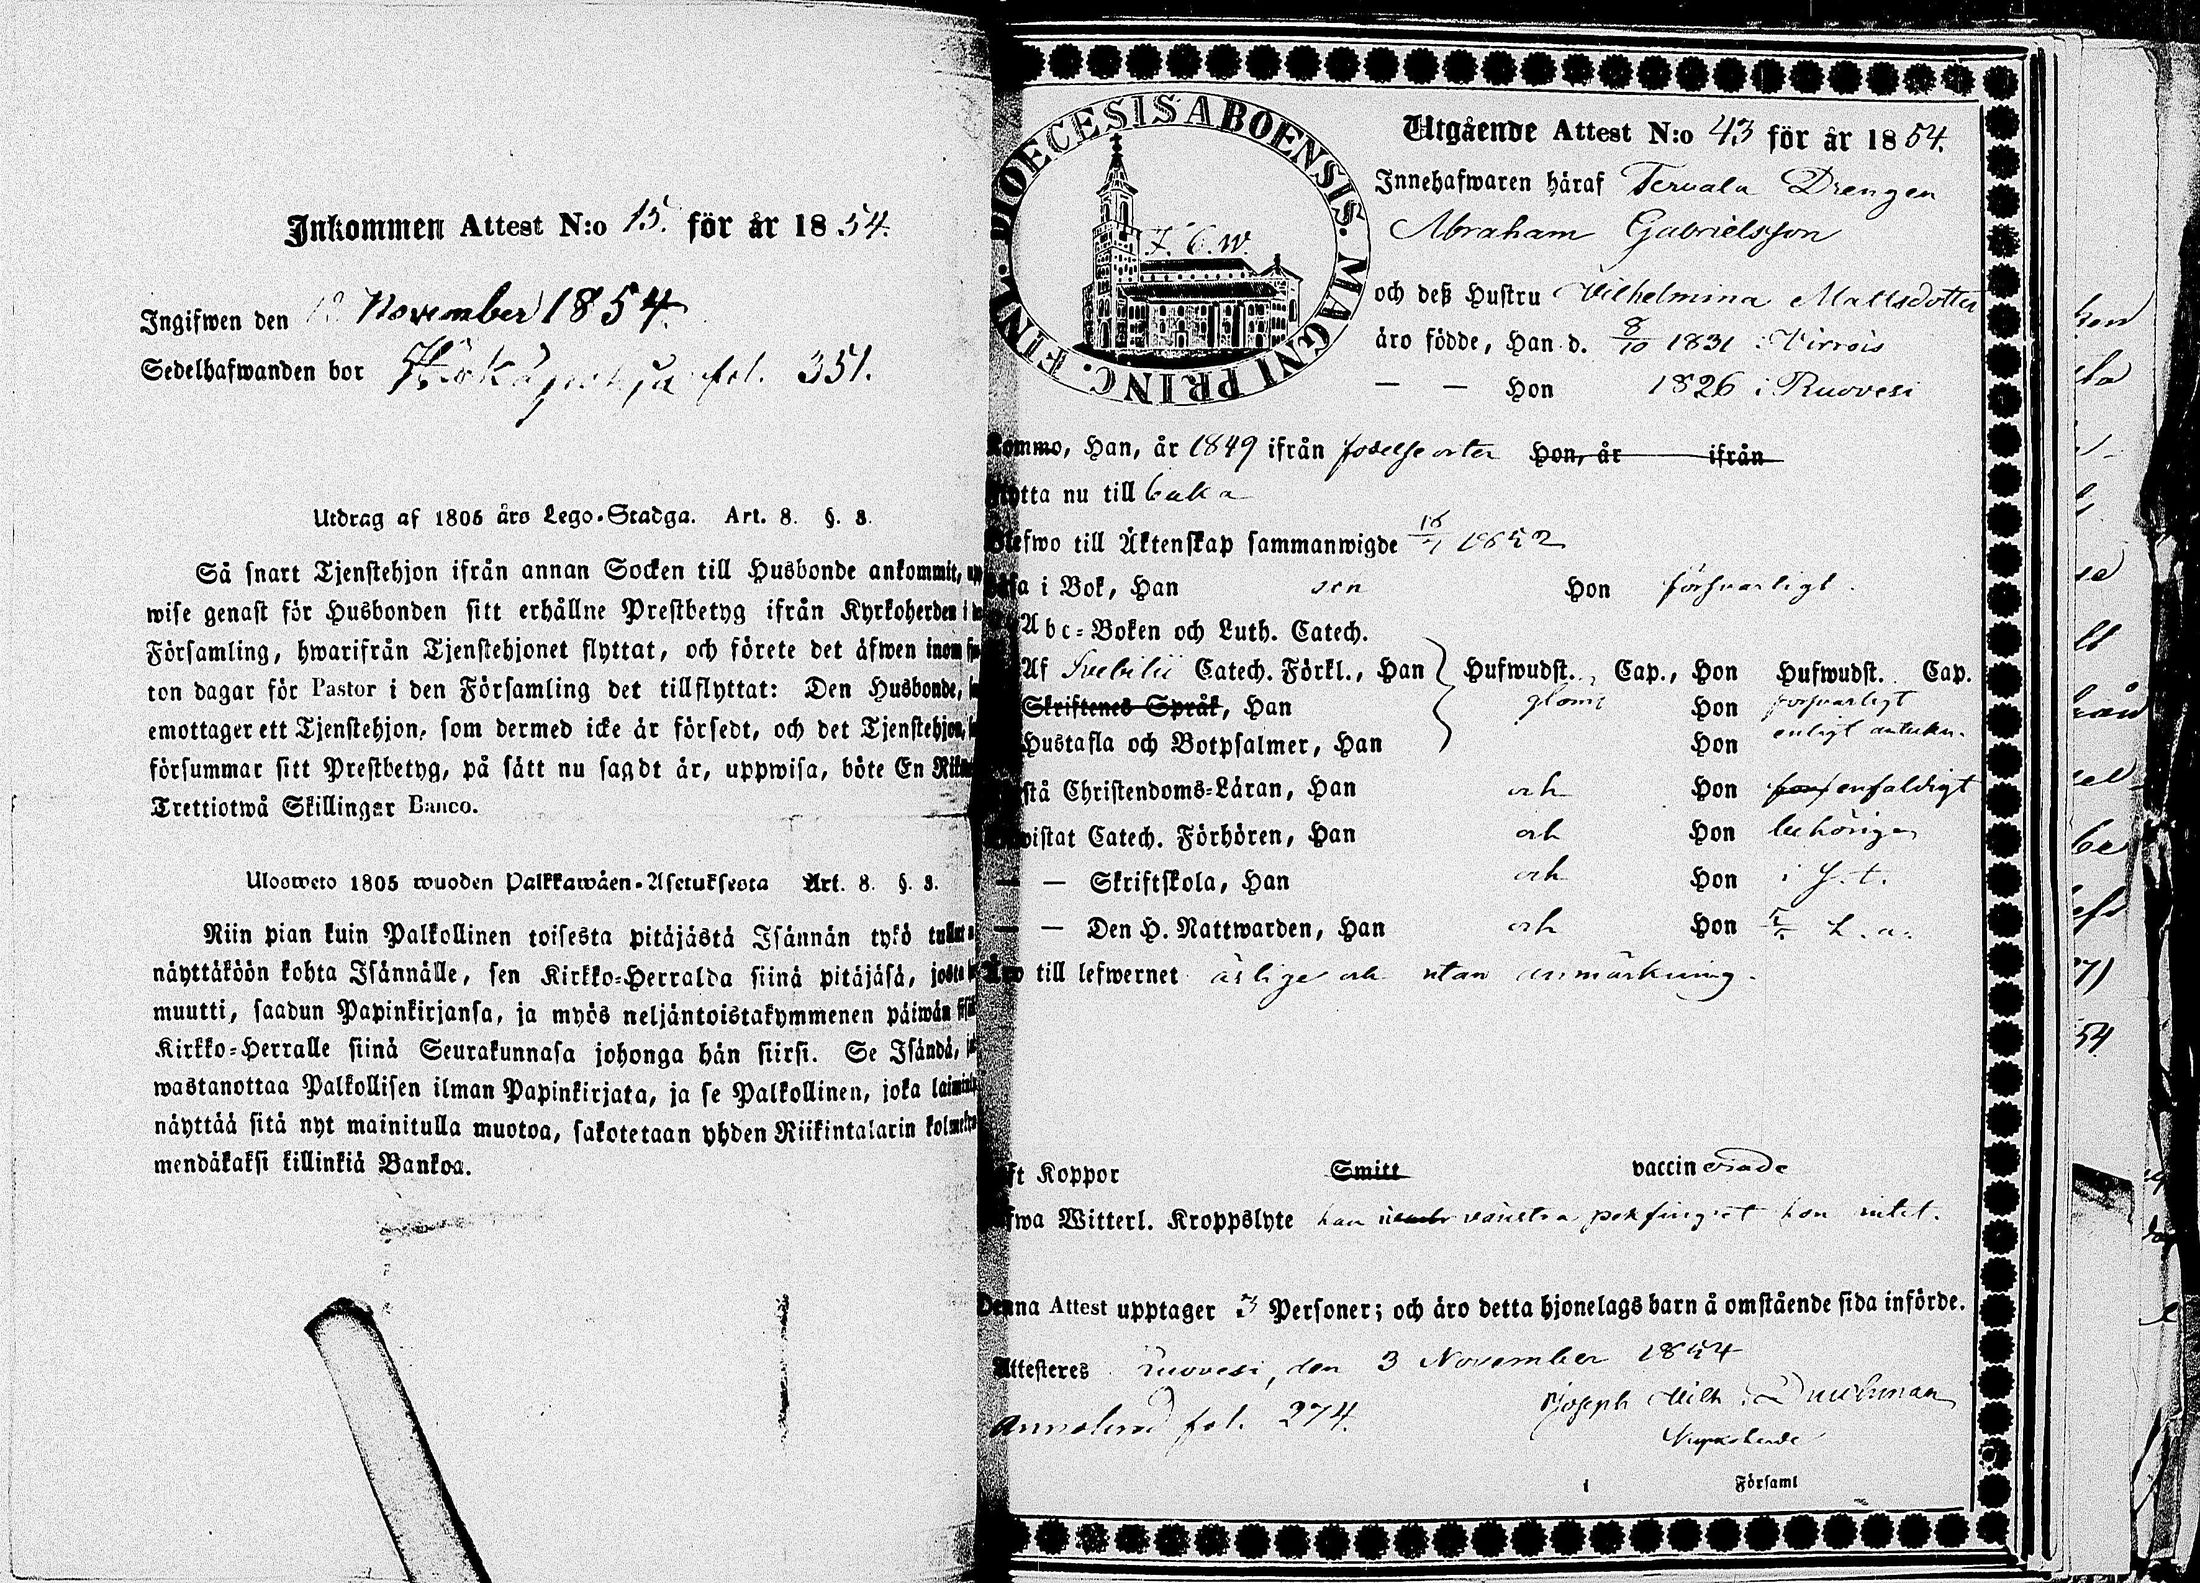 Inkommen Attest N:o 15. för år 1854.
Ingifwen den November 1854
Sedelhafwanden bor fol. 351.
Utdrag af 1805 års Lego-Stadga. Art. 8. §. 3.
Så snart Tjenstehjon ifrån annan Socken till Husbonde ankommit, upp
wise genast för Husbonden sitt erhållne Prestbetyg ifrån Kyrkoherden i
Församling, hwarifrån Tjenstehjonet flyttat, och förete det äfwen inom
ton dagar för Pastor i den Församling det tillflyttat: Den Husbonde,
emottager ett Tjenstehjon, som dermed icke är försedt, och det Tjenstehjon,
försummar sitt Prestbetyg, på sätt nu sagdt är, uppwisa, böte En
Trettiotwå Skillingar Banco.
Ulosweto 1805 wuoden Palkkawäen-Asetuksesta Art. 8. §. 3.
Niin pian kuin Palkollinen toisesta pitäjästä Isännän tykö
näyttäköön kohta Isännälle, sen Kirkko-Herralda siinä pitäjäsä, josta
muutti, saadun Papinkirjansa, ja myös neljäntoistakymmenen päiwän
Kirkko-Herralle siinä Seurakunnasa johonga hän siirsi. Se Isändä,
wastanottaa Palkollisen ilman Papinkirjata, ja se Palkollinen, joka
näyttää sitä nyt mainitulla muotoa, sakotetaan yhden Riikintalarin
mendäkaksi killinkiä Bankoa.
DIOECESIS ABOENSIS. MAGNI PRINC. FINL.
Utgående Attest N:o 43 för år 1854.
Innehafwaren häraf Tervala Drengen
Abraham Gabrielsson
och deß Hustru Wilhelmina Mattsdotter
äro födde, Han d. 8/10 1831 i Virrois
— — Hon 1826 i Ruovesi
Kommo, Han, år 1849 ifrån födelseorten Hon, år ifrån
flytta nu tillbaka
Blefwo till Äktenskap sammanwigde 1852
Läsa i Bok, Han sen Hon försvarligt.
Abc-Boken och Luth. Catech.
Af Svebilii Catech. Förkl., Han Hufwudst. Cap., Hon Hufwudst. Cap.
Skriftenes Språk, Han glömt Hon försvarligt
Hustafla och Botpsalmer, Han Hon enligt
Förstå Christendoms-Läran, Han och Hon enfaldigt
Bewistat Catech. Förhören, Han och Hon behörigen
— — Skriftskola, Han och Hon i
— — Den H. Nattwarden, Han och Hon
Äro till lefwernet ärlige och utan anmärkning.
Haft Koppor Smitt vaccinerade
Hafwa Witterl. Kroppslyte han venstra pekfingret hon intet.
Denna Attest upptager 3 Personer; och äro detta hjonelags barn å omstående sida införde.
Attesteres Ruovesi, den 3 November 1854
fol. 274. Joseph Wilh.
Kyrkoherde
Församl